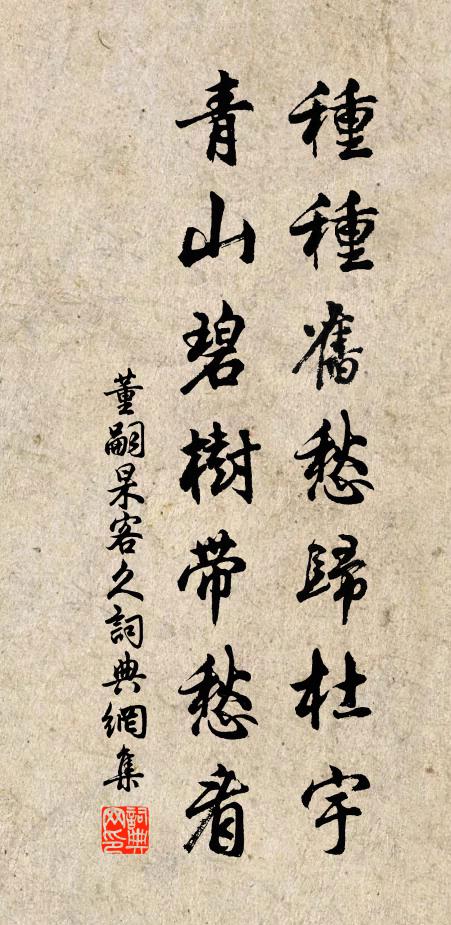 種種舊愁歸杜宇
青山碧樹帶愁看
董嗣杲客久詞典網集
詞典網印